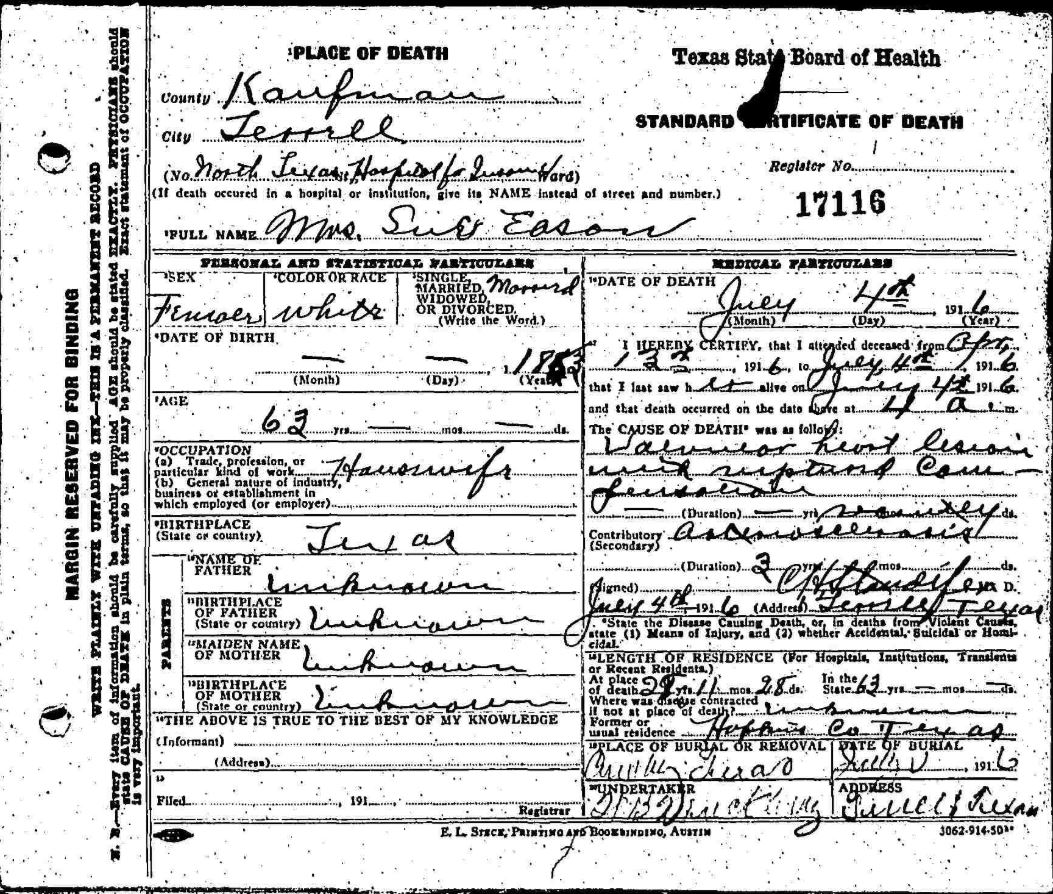 MARGIN RESERVED FOR BINDING
WRITE PLAINLY WITH UNFADING INK—THIS IS A PERMANENT RECORD
N. B.—Every item of information should be carefully supplied. AGE should be stated EXACTLY. PHYSICIANS should
state CAUSE OF DEATH in plain terms, so that it may be properly classified. Exact statement of OCCUPATION
is very important.
PLACE OF DEATH
County Kaufman
City Terrell
(No. North Texas Hospital for Insane Ward)
(If death occured in a hospital or institution, give its NAME instead of street and number.)
FULL NAME Mrs. Sue Eason
Texas State Board of Health
STANDARD CERTIFICATE OF DEATH
Register No.
17116
PERSONAL AND STATISTICAL PARTICULARS
SEX
COLOR OR RACE White
SINGLE, MARRIED, WIDOWED, OR DIVORCED. (Write the Word.) Married
DATE OF BIRTH
— — 1853
(Month) (Day) (Year)
AGE
63 yrs. — mos. — ds.
OCCUPATION
(a) Trade, profession, or
particular kind of work Housewife
(b) General nature of industry,
business or establishment in
which employed (or employer)
BIRTHPLACE
(State or country) Texas
PARENTS
NAME OF
FATHER unknown
BIRTHPLACE
OF FATHER
(State or country) Unknown
MAIDEN NAME
OF MOTHER Unknown
BIRTHPLACE
OF MOTHER
(State or country) Unknown
THE ABOVE IS TRUE TO THE BEST OF MY KNOWLEDGE
(Informant)
(Address)
Filed , 191
Registrar
MEDICAL PARTICULARS
DATE OF DEATH
July 4th 1916
(Month) (Day) (Year)
I HEREBY CERTIFY, that I attended deceased from Apr,
13th, 1916, to July 4th, 1916
that I last saw her alive on July 4th 1916
and that death occurred on the date above at 4 a. m.
The CAUSE OF DEATH* was as follows:
Valvular heart lesion
with ruptured Com-
pensation
(Duration) — yrs. ds.
Contributory Arteriosclerosis
(Secondary)
(Duration) 3 yrs. mos. ds.
(Signed) M. D.
July 4th 1916 (Address) Terrell Texas
*State the Disease Causing Death, or, in deaths from Violent Causes,
state (1) Means of Injury, and (2) whether Accidental, Suicidal or Homi-
cidal.
LENGTH OF RESIDENCE (For Hospitals, Institutions, Transients
or Recent Residents.)
At place of death yrs. 11 mos. 28 ds. In the State 63 yrs. — mos. — ds.
Where was disease contracted
if not at place of death? unknown
Former or
usual residence Hopkins Co Texas
PLACE OF BURIAL OR REMOVAL
DATE OF BURIAL
July 1916
UNDERTAKER
ADDRESS
Terrell Texas
E. L. STECK, PRINTING AND BOOKBINDING, AUSTIN
3062-914-50